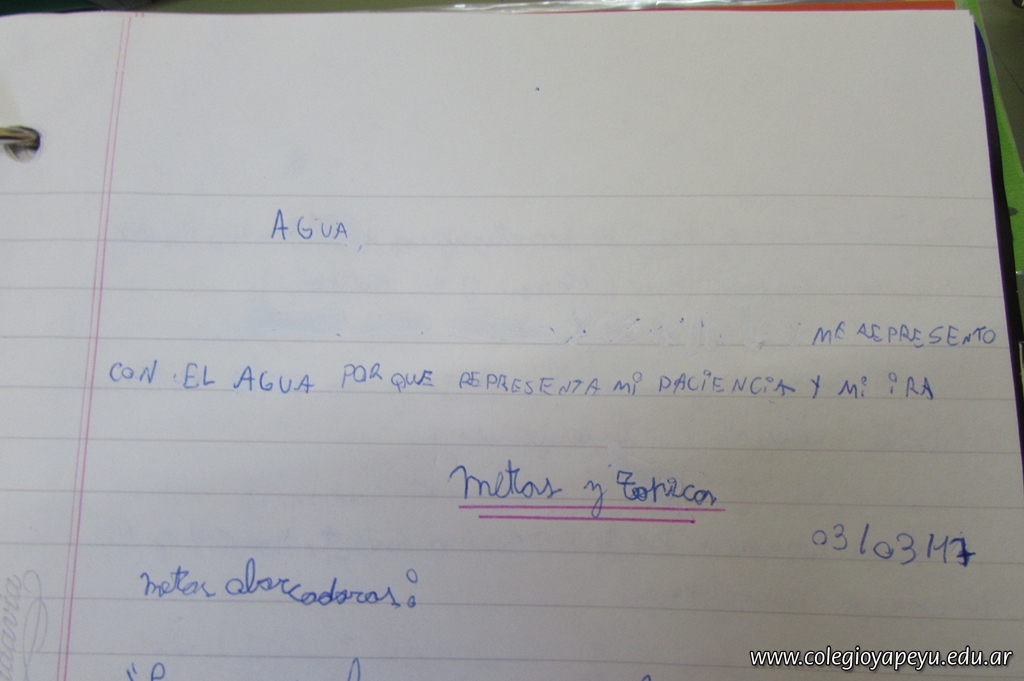 AGUA,
ME REPRESENTO
CON EL AGUA PORQUE REPRESENTA MI PACIENCIA Y MI IRA
Metas y Topicos
03/03/17
Metas abarcadoras:
www.colegioyapeyu.edu.ar